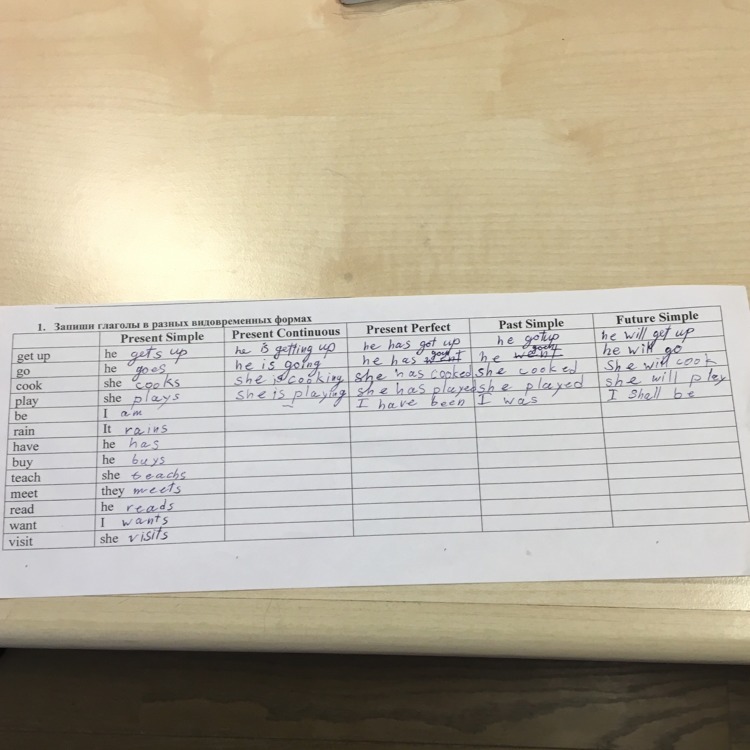 1. Запиши глаголы в разных видовременных формах
Present Simple Present Continuous Present Perfect Past Simple Future Simple
get up he gets up he is getting up he has got up he got up he will get up
go he goes he is going he has went he went he will go
cook she cooks she is cooking she has cooked she cooked she will cook
play she plays she is playing she has played she played she will play
be I am I have been I was I shall be
rain It rains
have he has
buy he buys
teach she teachs
meet they meets
read he reads
want I wants
visit she visits